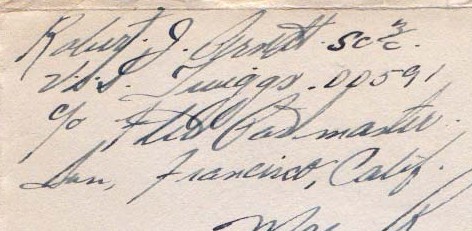 Robert J. Arnott. SC 3/c.
U.S.S. Twiggs. DD591
c/o Fleet Postmaster.
San, Francisco, Calif.